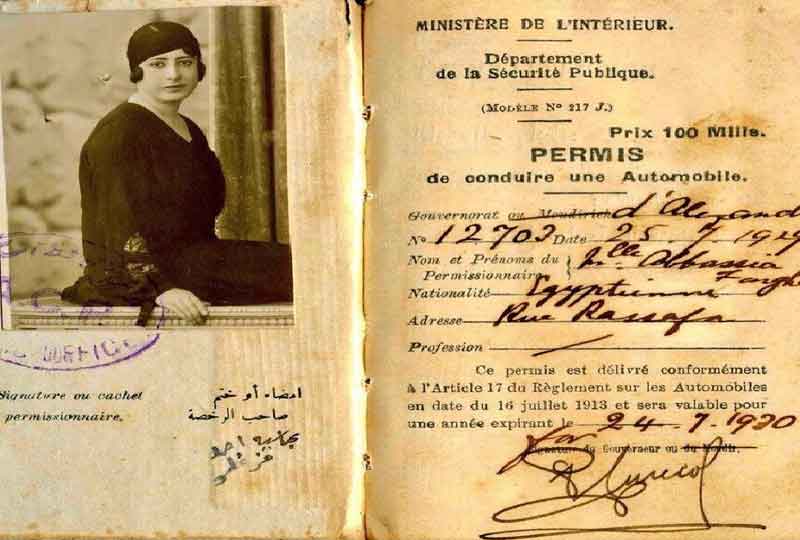 Signature ou cachet
permissionnaire.
امضاء أو ختم
صاحب الرخصة
عباسيه احمد
فرغلى
MINISTÈRE DE L'INTÉRIEUR.
Département
de la Sécurité Publique.
(MODÈLE No 217 J.)
Prix 100 Mills.
PERMIS
de conduire une Automobile.
Gouvernorat ou Moudirieh d'Alexand
No 12703 Date 25 7 1929
Nom et Prénoms du Mlle Abbassia
Permissionnaire Fargh
Nationalité Egyptienne
Adresse Rue Rassafa
Profession /
Ce permis est délivré conformément
à l'Article 17 du Règlement sur les Automobiles
en date du 16 juillet 1913 et sera valable pour
une année expirant le 24.7.1930
for
Signature du Gouverneur ou du Moudir.